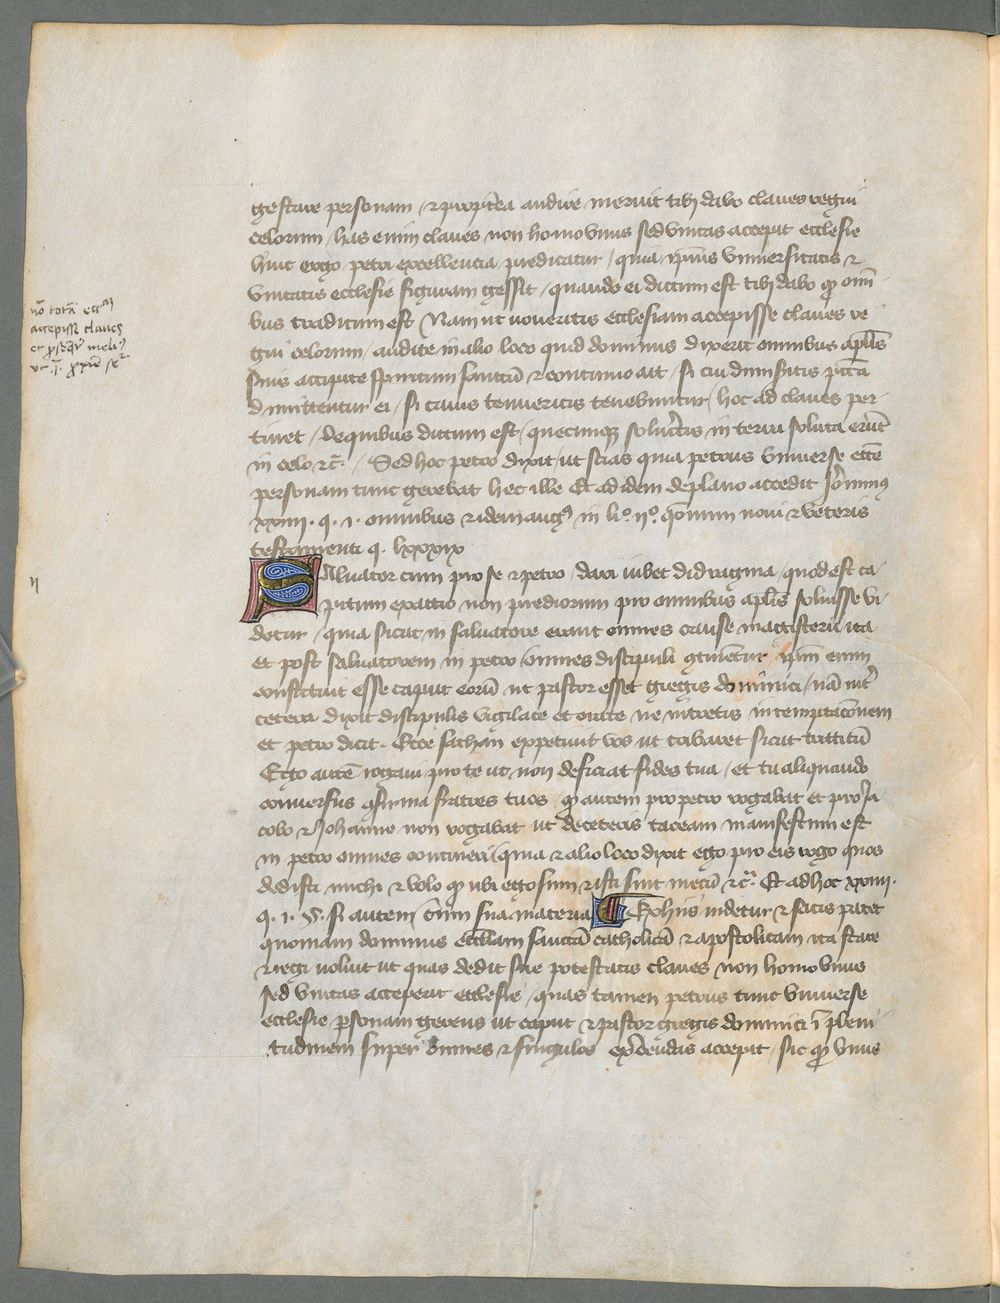 gestare personam / et propterea audire meruit tibi dabo claues regni
celorum / has enim claues non homo vnus sed vnitas accepit ecclesie
hinc ergo petri excellencia predicatur / quia ipsius vniuersitatis et
vnitatis ecclesie figuram gessit / quando ei dictum est tibi dabo quod omni
bus traditum est / Nam ut noueritis ecclesiam accepisse claues re
gni celorum / audite in alio loco quid dominus dixerit omnibus aplis
suis accipite spiritum sanctum et continuo ait / si cui dimiseritis pcta
dimittentur ei / si cuius tenueritis tenebuntur / hoc ad claues per
tinet / de quibus dictum est / quecumque solueritis in terra soluta erunt
in celo etc. / Sed hoc petro dixit / ut scias quia petrus vniuerse eccle
personam tunc gerebat hec ille Et ad idem de plano accedit
xxiiii. q. i. omnibus et idem aug9 in li.o qonum noui et veteris
testamenti q. lxxxix
SAluator cum pro se et petro / dari iubet didragma / quod est ca
pitum exactio non prediorum pro omnibus aplis soluisse vi
detur / quia sicut in saluatore erant omnes cause magisterii ita
et post saluatorem in petro / omnes discipuli continentur ipsum enim
constituit esse caput eorum ut pastor esset gregis dominici / nam inter
cetera dixit discipulis vigilate et orate ne intretis in temptacionem
et petro dicit. Ecce sathan expetiuit vos ut cribraret sicut triticum
Ego autem rogaui pro te ut non deficiat fides tua / et tu aliquando
conuersus confirma fratres tuos / quod autem pro petro rogabat et pro Ja
cobo et Johanne non rogabat ut de ceteris taceam manifestum est
in petro omnes contineri / quia et alio loco dixit ego pro eis rogo quos
dedisti michi et volo quod vbi ego sum et isti sint mecum etc. Et ad hoc xxiiii.
q. i. §. si autem cum sua materia Ex hiis videtur et satis patet
quoniam dominus ecclesiam sanctam catholicam et apostolicam ita stare
et regi uoluit ut quas dedit sue potestatis claues non homo vnus
sed vnitas acceperit ecclesie / quas tamen petrus tunc vniuerse
ecclesie personam gerens ut caput et pastor gregis dominici in pleni
tudinem super omnes et singulos accepit / sic quod vnus
no totam eccam
accepisse claues
et melius
II